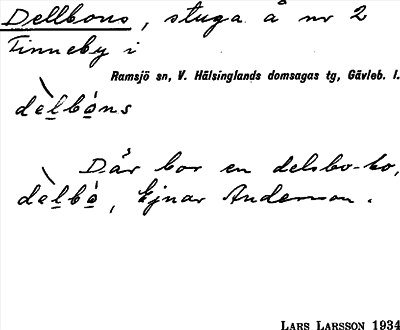 Dellbons, stuga å nr 2
Finneby i
Ramsjö sn, V. Hälsinglands domsagas tg, Gävleb. l.
dèlbóns
Där bor en delsbo-bo,
dèlbó, Ejnar Anderson.
LARS LARSSON 1934